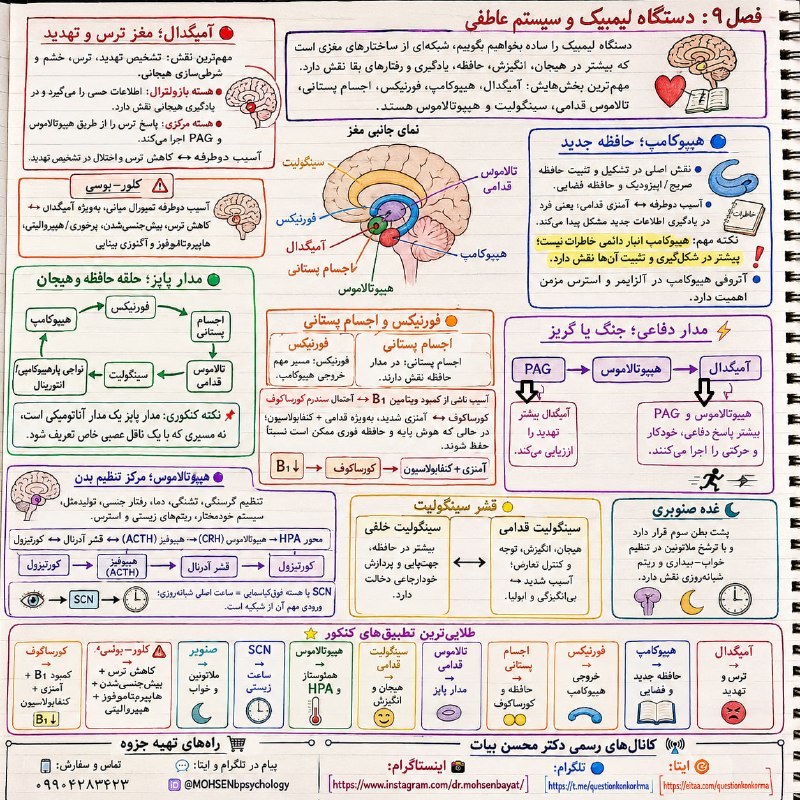 فصل ۹: دستگاه لیمبیک و سیستم عاطفی
دستگاه لیمبیک را ساده بخواهیم بگوییم، شبکه‌ای از ساختارهای مغزی است
که بیشتر در هیجان، انگیزش، حافظه، یادگیری و رفتارهای بقا نقش دارد.
مهم‌ترین بخش‌هایش: آمیگدال، هیپوکامپ، فورنیکس، اجسام پستانی،
تالاموس قدامی، سینگولیت و هیپوتالاموس هستند.
آمیگدال؛ مغز ترس و تهدید
مهم‌ترین نقش: تشخیص تهدید، ترس، خشم و
شرطی‌سازی هیجانی.
هسته بازولترال: اطلاعات حسی را می‌گیرد و در
یادگیری هیجانی نقش دارد.
هسته مرکزی: پاسخ ترس را از طریق هیپوتالاموس
و PAG اجرا می‌کند.
آسیب دوطرفه ↔ کاهش ترس و اختلال در تشخیص تهدید.
کلور-بوسی
آسیب دوطرفه تمپورال میانی، به‌ویژه آمیگدال ↔
کاهش ترس، بیش‌جنسی‌شدن، پرخوری/هیپروالیتی،
هایپرمتامورفوز و آگنوزی بینایی
نمای جانبی مغز
سینگولیت
تالاموس
قدامی
فورنیکس
آمیگدال
اجسام پستانی
هیپوتالاموس
هیپوکامپ
هیپوکامپ؛ حافظه جدید
نقش اصلی در تشکیل و تثبیت حافظه
صریح/اپیزودیک و حافظه فضایی.
خاطرات
آسیب دوطرفه ↔ آمنزی قدامی؛ یعنی فرد
در یادگیری اطلاعات جدید مشکل پیدا می‌کند.
نکته مهم: هیپوکامپ انبار دائمی خاطرات نیست؛
بیشتر در شکل‌گیری و تثبیت آن‌ها نقش دارد.
آتروفی هیپوکامپ در آلزایمر و استرس مزمن
اهمیت دارد.
مدار پاپز؛ حلقه حافظه و هیجان
هیپوکامپ
فورنیکس
اجسام
پستانی
تالاموس
قدامی
سینگولیت
نواحی پارهیپوکامپی/
انتورینال
نکته کنکوری: مدار پاپز یک مدار آناتومیکی است،
نه مسیری که با یک ناقل عصبی خاص تعریف شود.
فورنیکس و اجسام پستانی
اجسام پستانی
اجسام پستانی: در مدار
حافظه نقش دارند.
فورنیکس
فورنیکس: مسیر مهم
خروجی هیپوکامپ.
آسیب ناشی از کمبود ویتامین B۱ ↔ احتمال سندرم کورساکوف
کورساکوف ↔ آمنزی شدید، به‌ویژه قدامی + کنفابولاسیون؛
در حالی که هوش پایه و حافظه فوری ممکن است نسبتاً
حفظ شوند.
B۱↓
کورساکوف
آمنزی + کنفابولاسیون
مدار دفاعی؛ جنگ یا گریز
PAG
هیپوتالاموس
آمیگدال
آمیگدال بیشتر
تهدید را
ارزیابی می‌کند.
هیپوتالاموس و PAG
بیشتر پاسخ دفاعی، خودکار
و حرکتی را اجرا می‌کنند.
هیپوتالاموس؛ مرکز تنظیم بدن
تنظیم گرسنگی، تشنگی، دما، رفتار جنسی، تولیدمثل،
سیستم خودمختار، ریتم‌های زیستی و استرس.
محور HPA ↔ هیپوتالاموس (CRH)→ هیپوفیز (ACTH)↔ قشر آدرنال ↔ کورتیزول
کورتیزول
هیپوفیز
(ACTH)
قشر آدرنال
کورتیزول
SCN
SCN یا هسته فوق‌کیاسمایی = ساعت اصلی شبانه‌روزی؛
ورودی مهم آن از شبکیه است.
قشر سینگولیت
سینگولیت قدامی
هیجان، انگیزش، توجه
و کنترل تعارض؛
آسیب شدید ↔
بی‌انگیزگی و ابولیا.
سینگولیت خلفی
بیشتر در حافظه،
جهت‌یابی و پردازش
خودارجاعی دخالت
دارد.
غده صنوبری
پشت بطن سوم قرار دارد
و با ترشح ملاتونین در تنظیم
خواب-بیداری و ریتم
شبانه‌روزی نقش دارد.
طلایی‌ترین تطبیق‌های کنکور
آمیگدال
→
ترس و
تهدید
هیپوکامپ
→
حافظه جدید
و فضایی
فورنیکس
→
خروجی
هیپوکامپ
اجسام
پستانی
→
حافظه و
کورساکوف
تالاموس
قدامی
→
مدار پاپز
سینگولیت
قدامی
→
هیجان و
انگیزش
هیپوتالاموس
→
هموستاز
و HPA
SCN
→
ساعت
زیستی
صنوبر
→
ملاتونین
و خواب
کلور-بوسی
→
کاهش ترس +
بیش‌جنسی‌شدن
+ هایپرمتامورفوز +
هیپروالیتی
کورساکوف
→
کمبود B۱ +
آمنزی +
کنفابولاسیون
B۱↓
کانال‌های رسمی دکتر محسن بیات
ایتا:
https://eitaa.com/questionkonkorima
تلگرام:
https://t.me/questionkonkorima
اینستاگرام:
https://www.instagram.com/dr.mohsenbayat/
راه‌های تهیه جزوه
پیام در تلگرام و ایتا:
@MOHSENbpsychology
تماس و سفارش:
۰۹۹۰۴۲۸۳۴۲۳